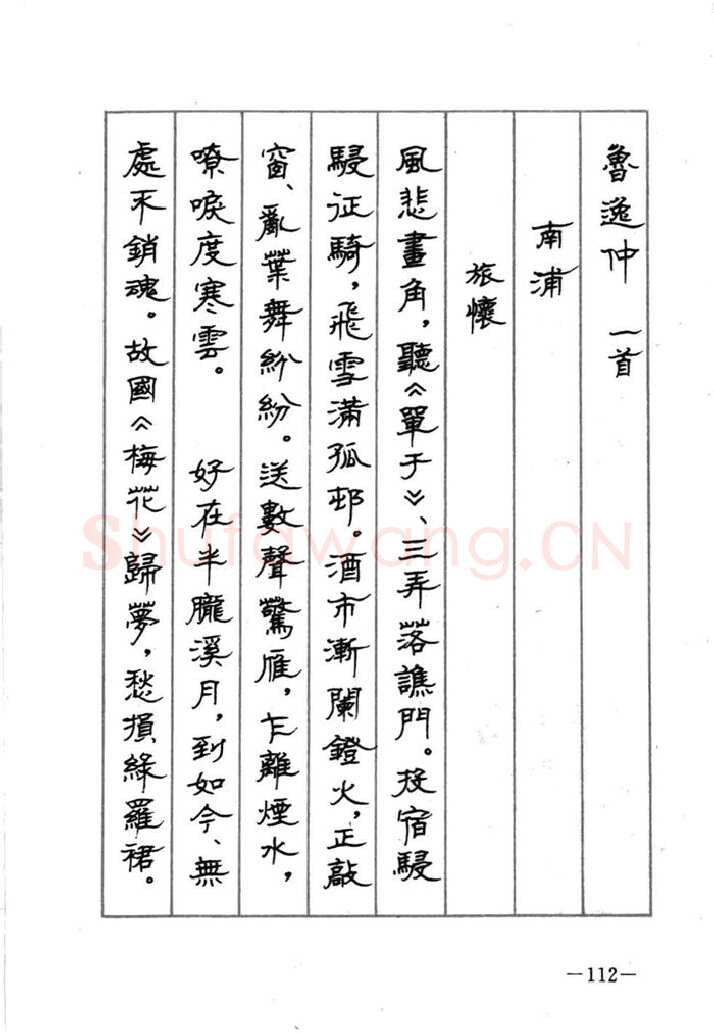 魯逸仲 一首
南浦
旅懷
風悲畫角，聽《單于》、三弄落譙門。投宿駸
駸征騎，飛雪滿孤邨。酒市漸闌鐙火，正敲
窗、亂葉舞紛紛。送數聲驚雁，乍離煙水，
嘹唳度寒雲。 好在半朧溪月，到如今、無
處不銷魂。故國《梅花》歸夢，愁損綠羅裙。
Shufawang.CN
—112—